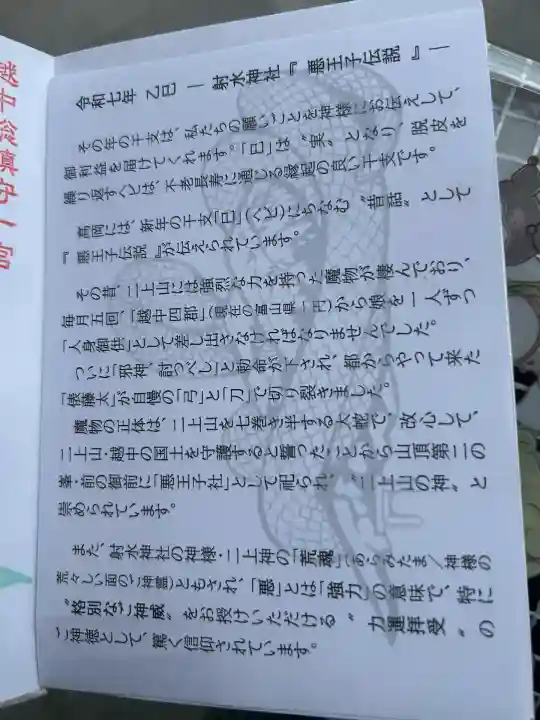 越中総鎮守一宮
令和七年 乙巳 ― 射水神社『 悪王子伝説 』―
その年の干支は、私たちの願いごとを神様にお伝えして、
御利益を届けてくれます。「巳」は〝実〟となり、脱皮を
繰り返すヘビは、不老長寿に通じる縁起の良い干支です。
高岡には、新年の干支「巳」(ヘビ)にちなむ〝昔話〟として
『 悪王子伝説 』が伝えられています。
その昔、二上山には強烈な力を持った魔物が棲んでおり、
毎月五回、「越中四郡」(現在の富山県一円)から娘を一人ずつ
「人身御供」として差し出さなければなりませんでした。
ついに「邪神、討つべし」と勅命が下され、都からやって来た
「俵藤太」が自慢の「弓」と「刀」で切り裂きました。
魔物の正体は、二上山を七巻き半する大蛇で、改心して、
二上山・越中の国土を守護すると誓ったことから山頂第二の
峯・前の御前に「悪王子社」として祀られ、〝二上山の神〟と
崇められています。
また、射水神社の神様・二上神の「荒魂」(あらみたま/神様の
荒々しい面のご神霊)ともされ、「悪」とは「強力」の意味で、特に
〝格別なご神威〟をお授けいただける〝 力運拝受 〟の
ご神徳として、篤く信仰されています。